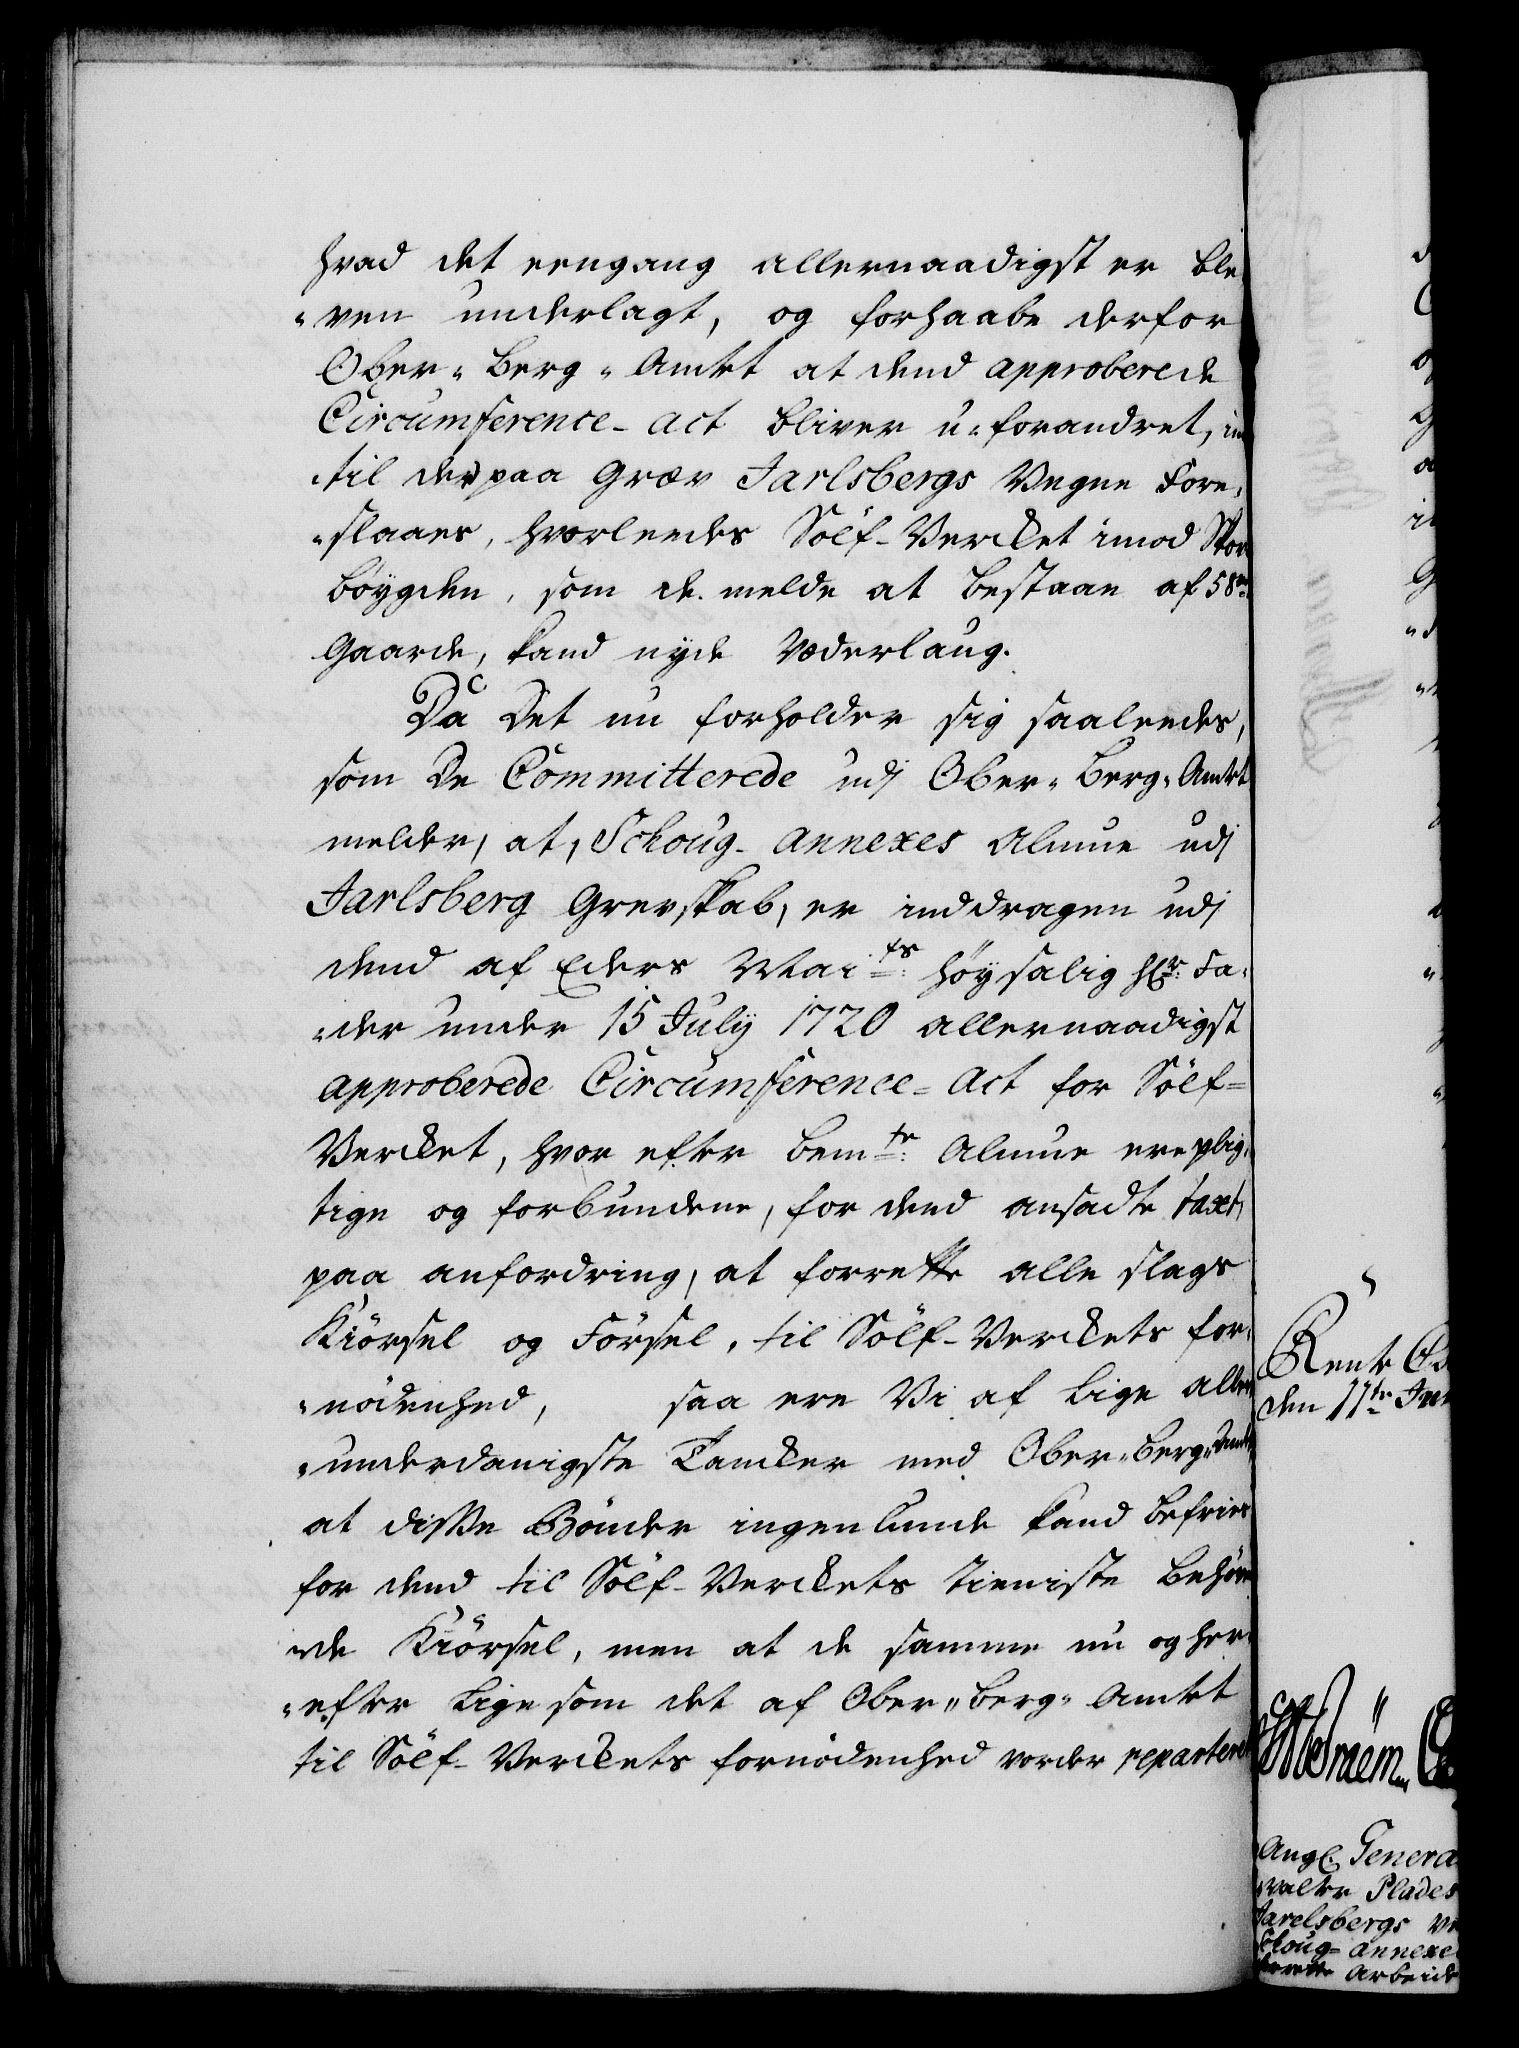 hvad det eengang allernaadigst er ble
"ven underlagt, og forhaabe derfor
Ober-Berg-Amtet at dend approberede
Circumference-Act bliver u-forandret, in
"til der paa Græv Jarlsbergs Vegne Fore-
"slaaes, hvorleedes Sölf-Vercket imod Skou
böygden, som de melde at bestaae af 58
Gaarde, kand nyde Vederlaug.
Da Det nu forholder sig saaleedes,
som De Committerede udj Ober-Berg-Amtet
melder, at, Schoug-Annexes Almue udj
Jarlsberg Grevskab, er inddragen udj
dend af Eders Mai:ts höysalig Hr: Fa-
"der under 15 July 1720 allernaadigst
approberede Circumference-Act for Sölf-
Vercket, hvor efter bem:te Almue ere plig-
tige og forbundene, for dend ansadte taxt,
paa anfordring, at forrette alle slags
Kiörsel og Försel, til Sölf-Verckets for-
"nödenhed, saa ere Vi af lige aller
"underdanigste Tancker med Ober-Berg-Amtet
at disse Bönder ingenlunde kand befries
for dend til Sölf-Verckets tieniste behöve
"de Kiörsel, men at de samme nu og her-
"efter lige som det af Ober-Berg-Amtet
til Sölf-Verckets fornödenhed vorder reparteret
Rente Ca
den 11te Jan
Ang: Genera
valter Plades
Jarelsbergs Ve
Schoug-Annexe
forrette Arbeide